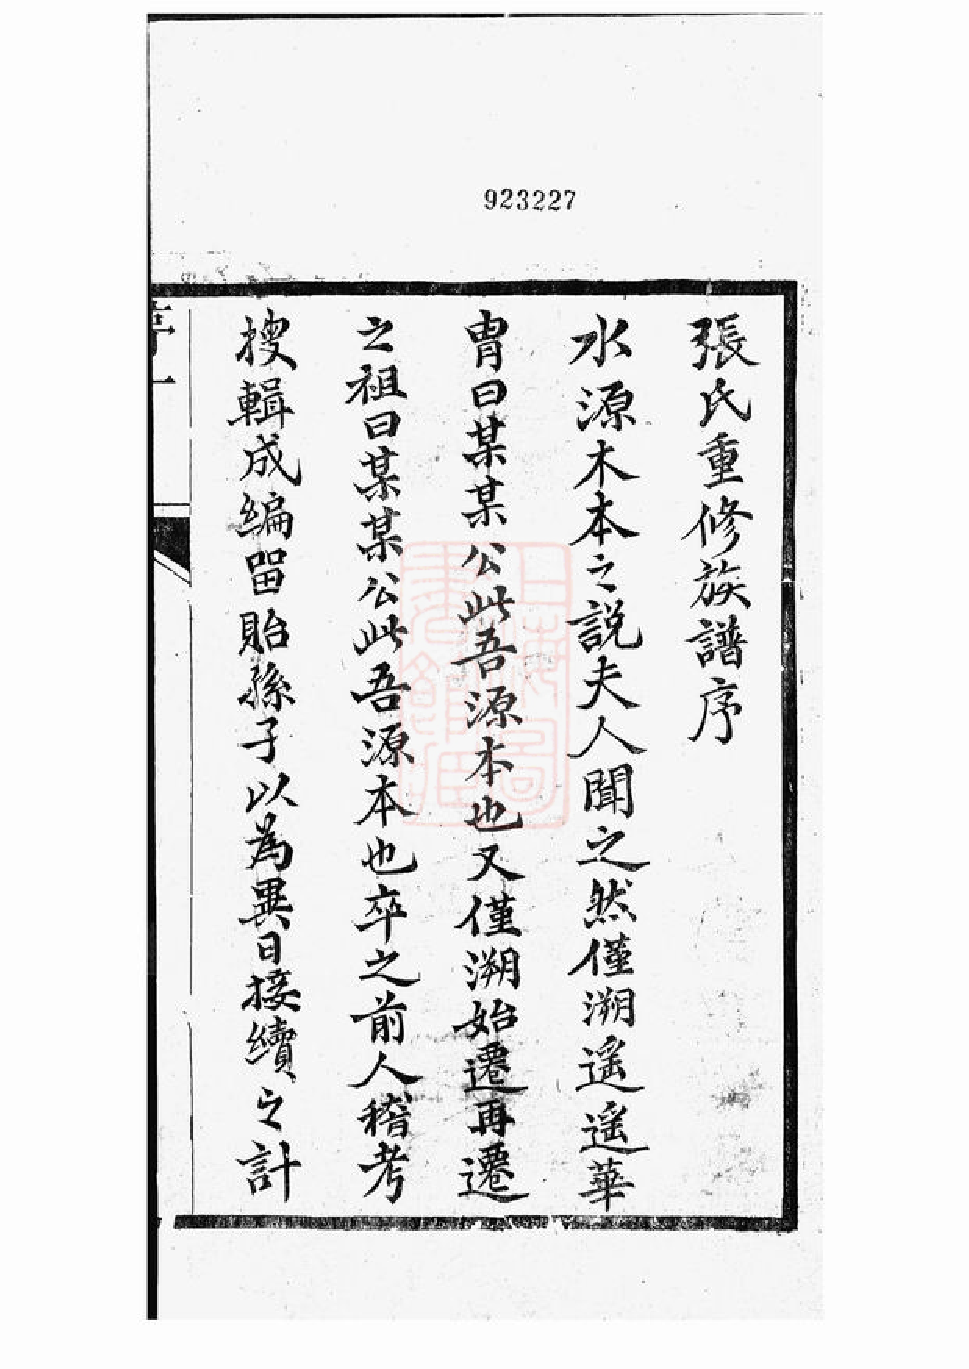 923227
張氏重修族譜序
水源木本之説夫人聞之然僅溯遥遥華
胄曰某某公此吾源本也又僅溯始遷再遷
之祖曰某某公此吾源本也卒之前人稽考
搜輯成編留貽孫子以為異日接續之計
序一
上海圖書館藏